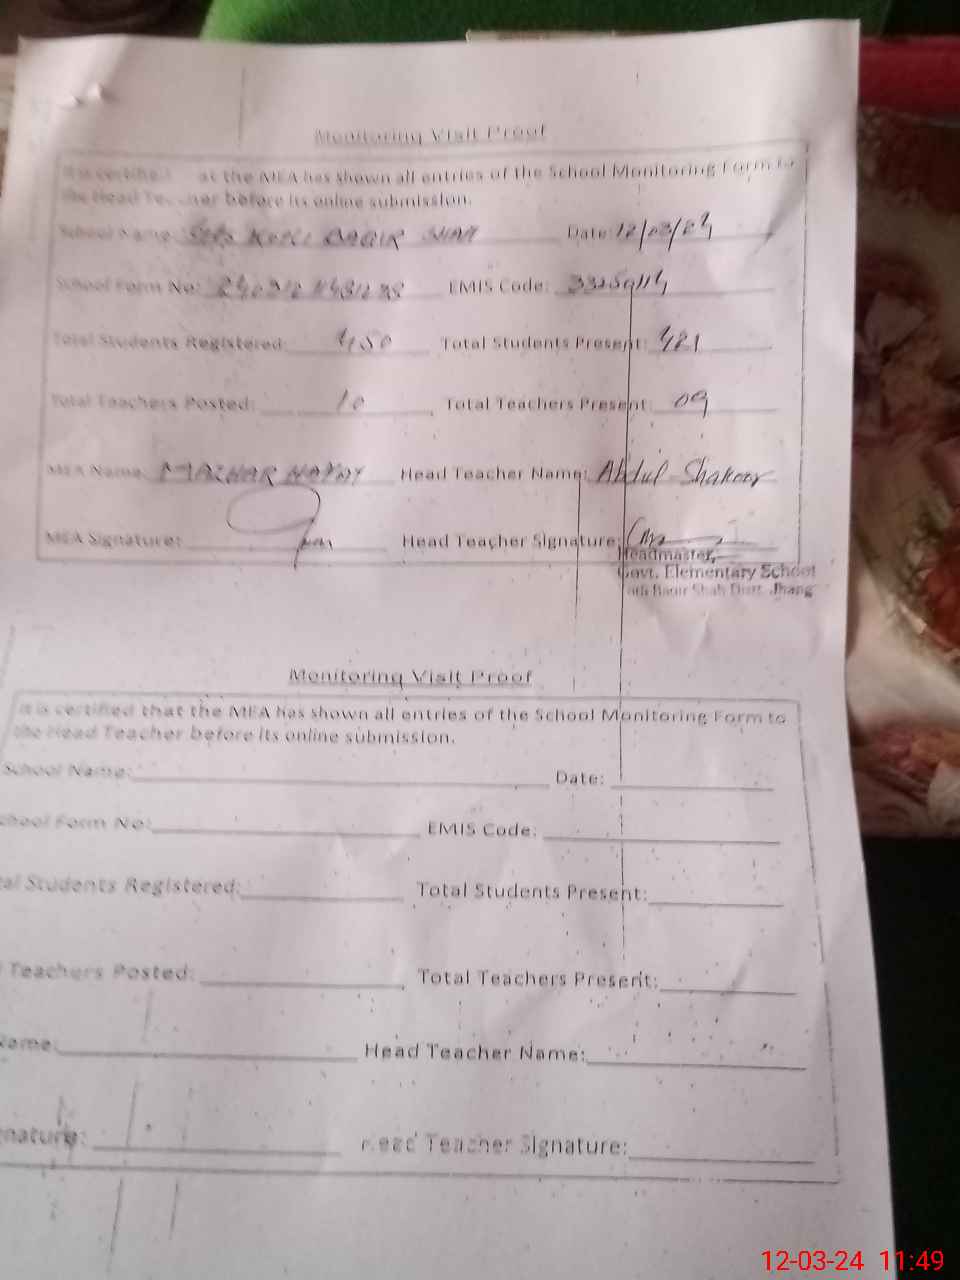 Monitoring Visit Proof
It is certified at the MEA has shown all entries of the School Monitoring Form to
the Head before its online submission.
School Name: BAQIR SHAH Date: 12/03/24
School Form No: EMIS Code:
Total Students Registered: 450 Total Students Present: 421
Total Teachers Posted: 10 Total Teachers Present: 09
MEA Name: MAZHAR Head Teacher Name: Abdul Shakoor
MEA Signature: Head Teacher Signature:
Headmaster,
Govt. Elementary School
Baqir Shah Distt. Jhang
Monitoring Visit Proof
It is certified that the MEA has shown all entries of the School Monitoring Form to
the Head Teacher before its online submission.
School Name: Date:
chool Form No: EMIS Code:
al Students Registered: Total Students Present:
Teachers Posted: Total Teachers Present:
ame: Head Teacher Name:
nature: Head Teacher Signature:
12-03-24 11:49